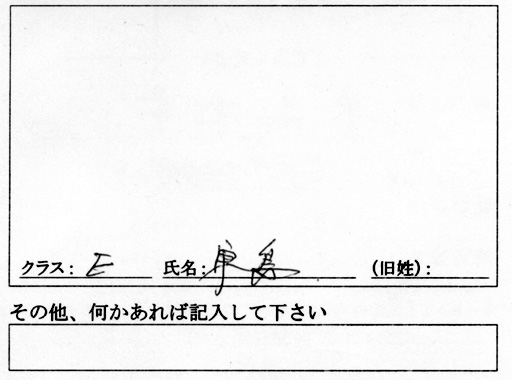 クラス: E 氏名: (旧姓):
その他、何かあれば記入して下さい